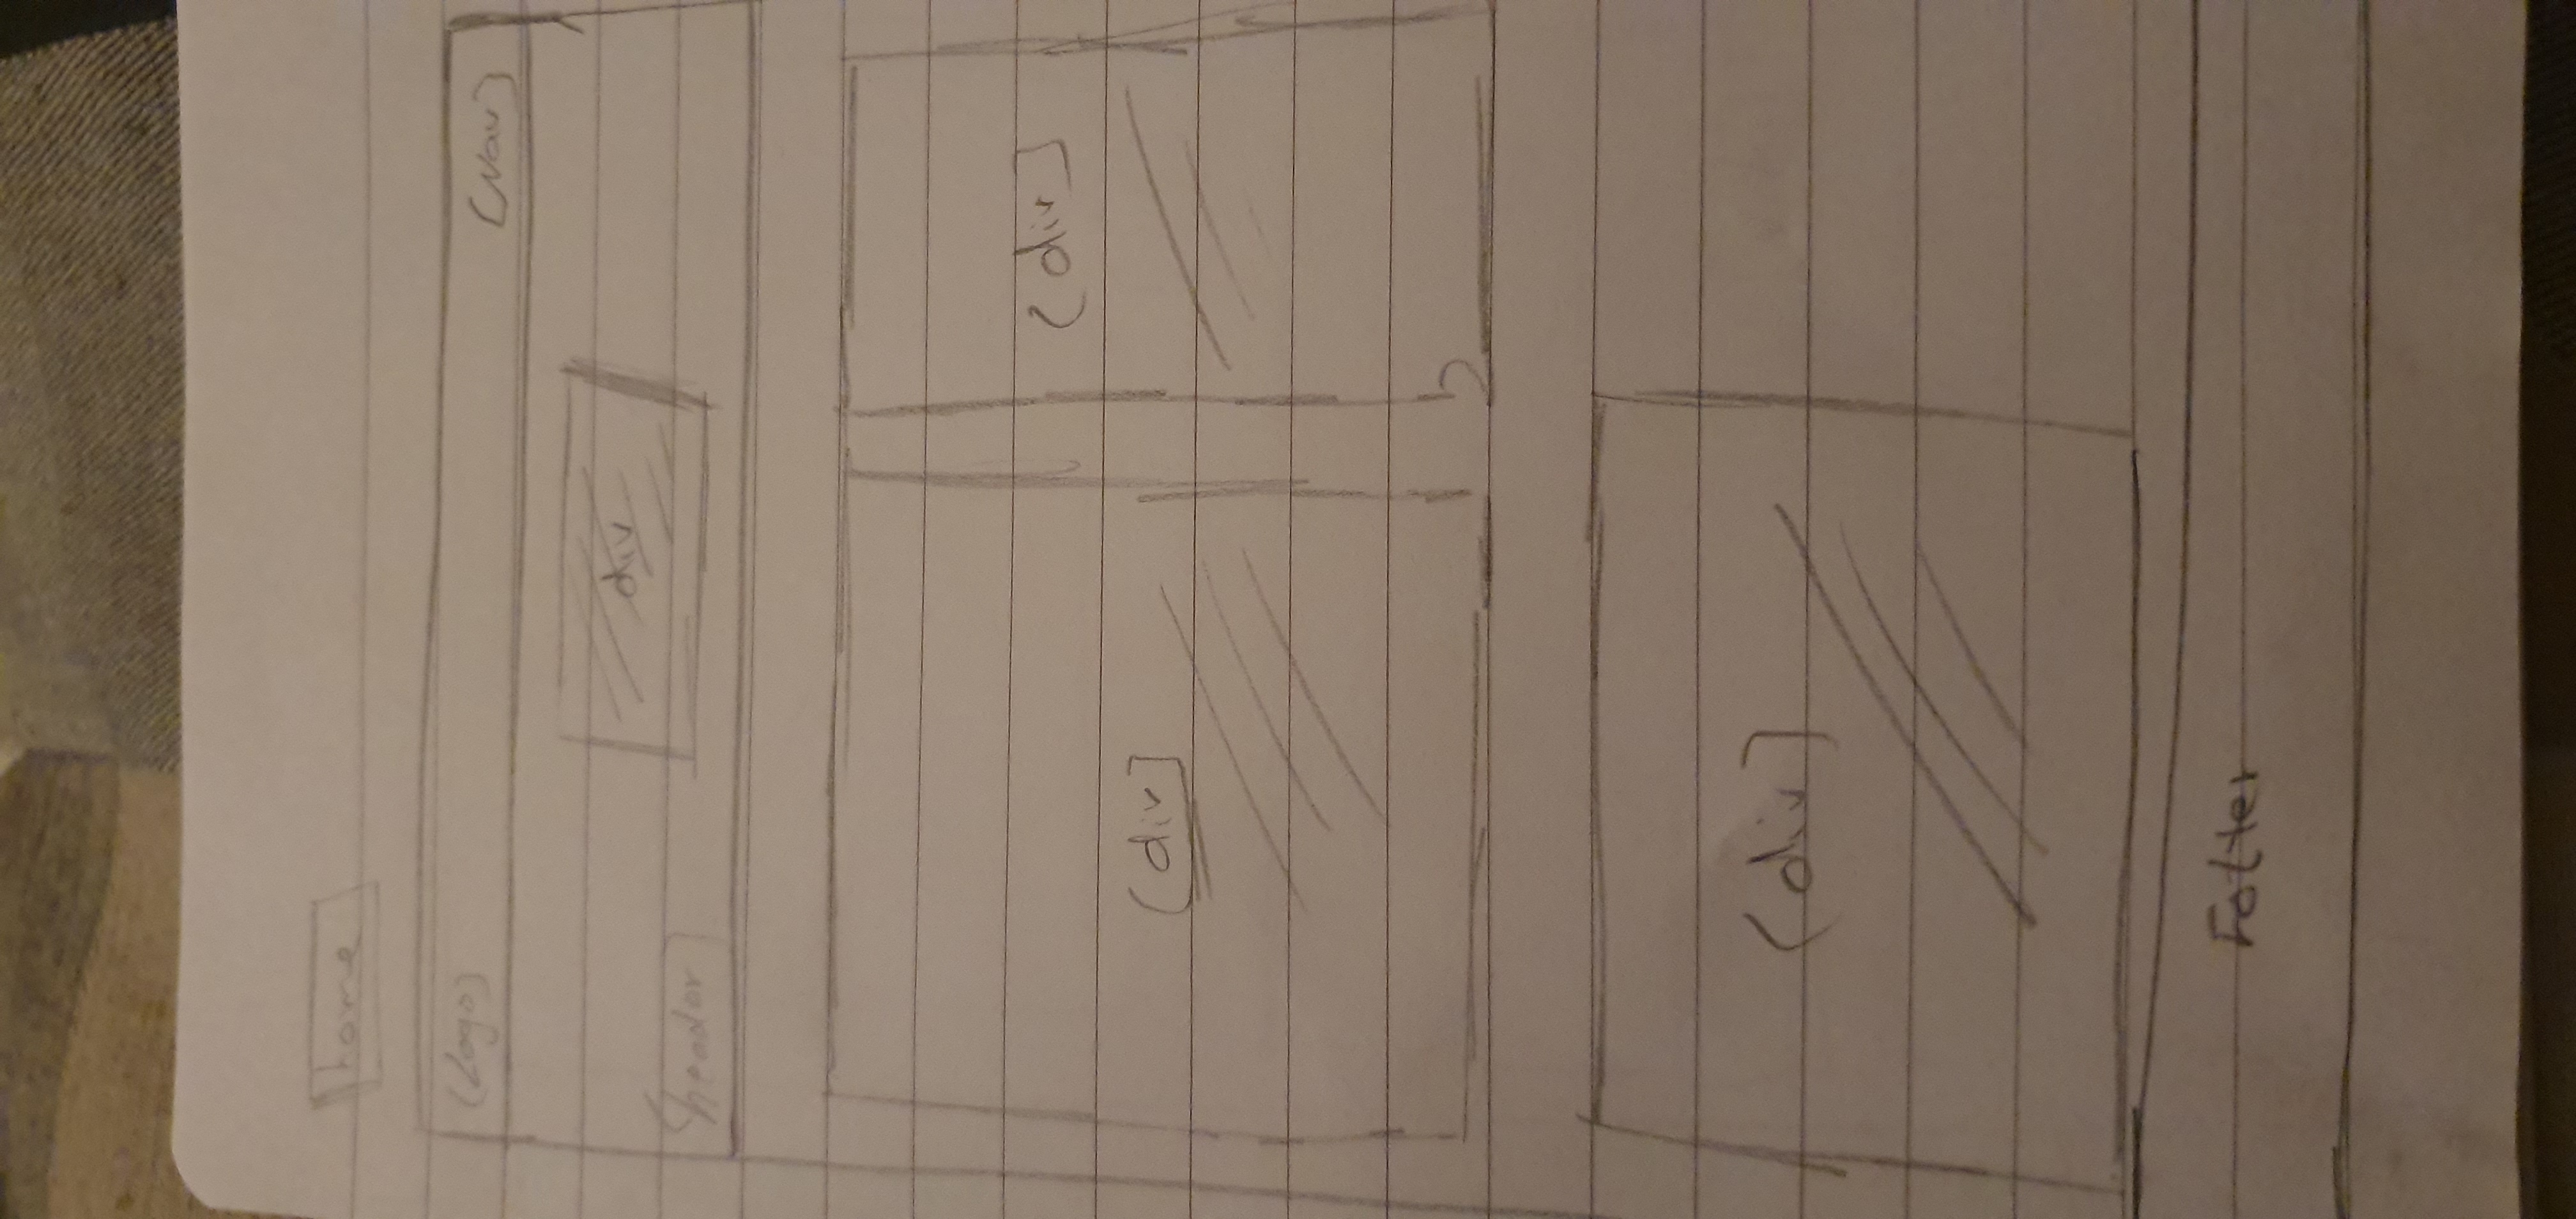 home
(Logo)
[Nav]
div
header
[div]
(div]
(div]
Fotter